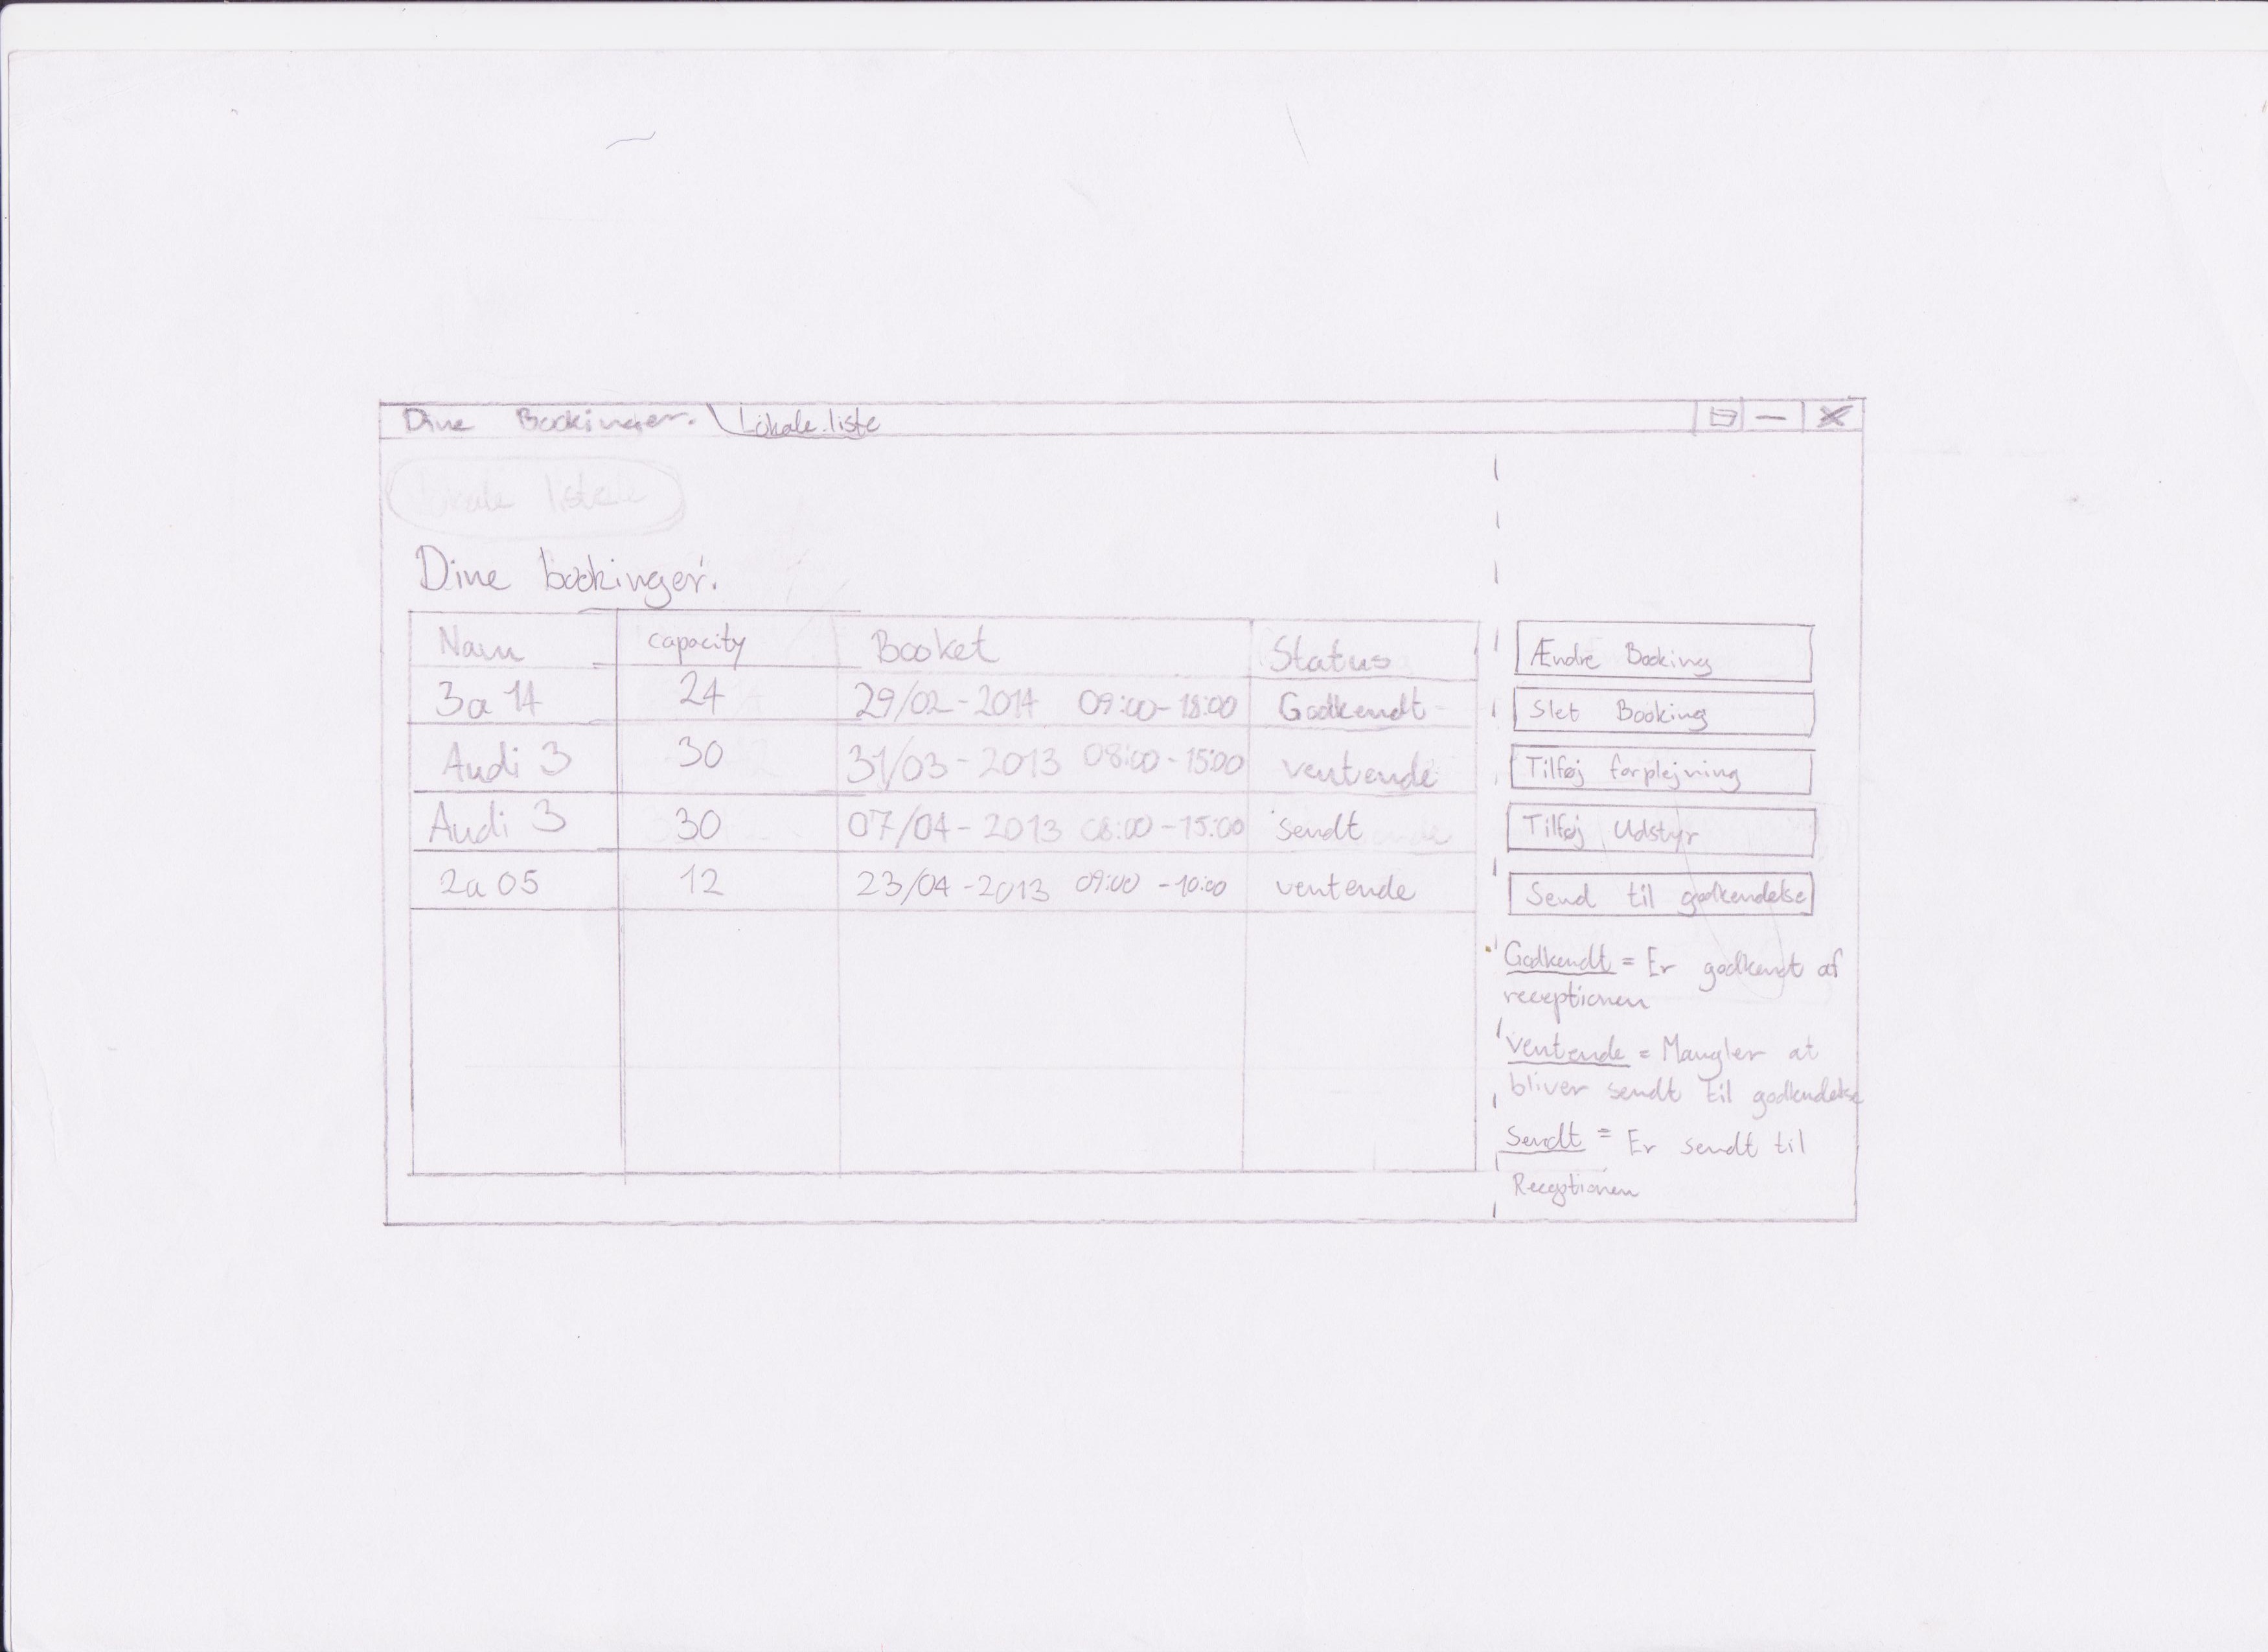 Dine Bookinger. Lokale liste
Dine bookinger.
Navn capacity Booket Status
3a 14 24 29/02-2014 09:00-18:00 Godkendt
Audi 3 30 31/03-2013 08:00-15:00 ventende
Audi 3 30 07/04-2013 08:00-15:00 sendt
2a 05 12 23/04-2013 09:00-10:00 ventende
Ændre Booking
Slet Booking
Tilføj forplejning
Tilføj Udstyr
Send til godkendelse
Godkendt = Er godkendt af
receptionen
Ventende = Mangler at
bliver sendt til godkendelse
Sendt = Er sendt til
Receptionen